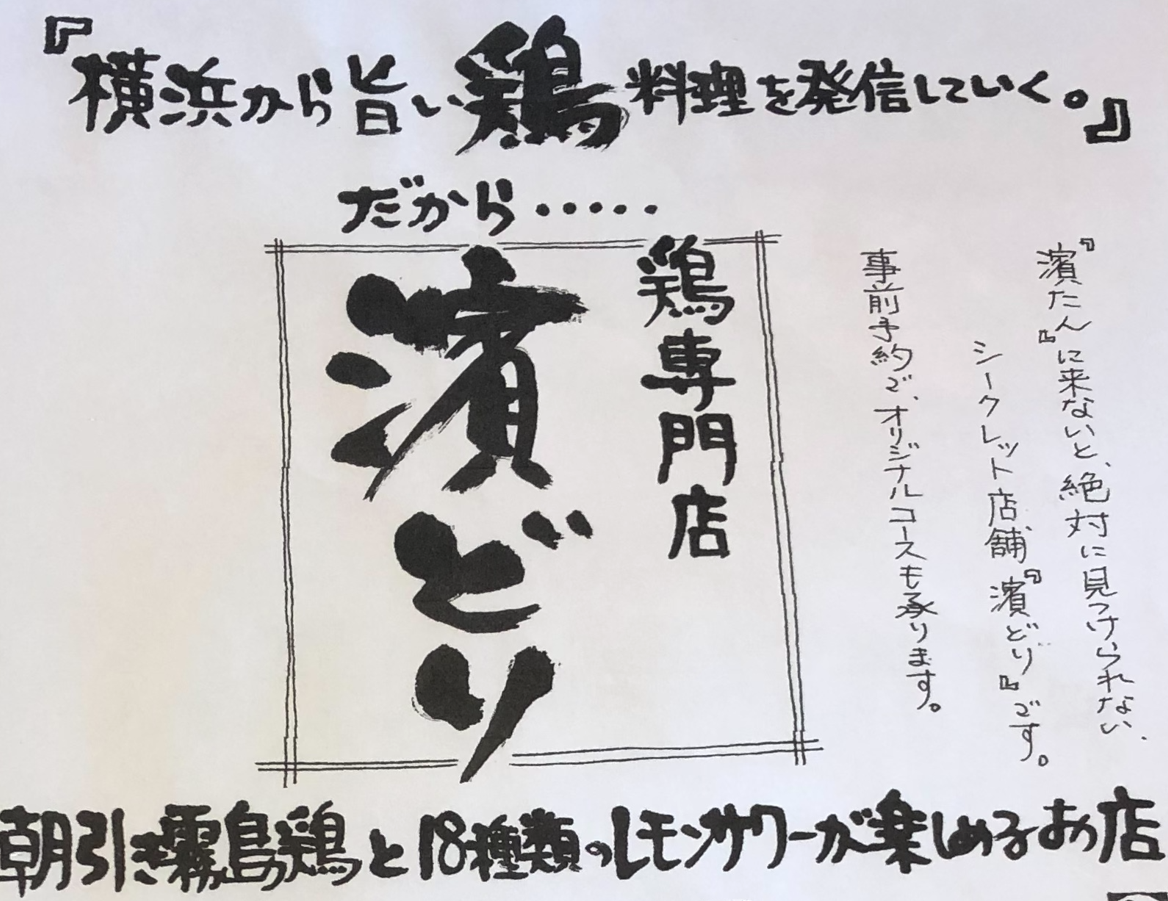 『横浜から旨い鶏料理を発信していく。』
だから・・・・・
『濱たん』に来ないと、絶対に見つけられない、
シークレット店舗『濱どり』です。
事前予約で、オリジナルコースも承ります。
鶏専門店
濱どり
朝引き霧島鶏と18種類のレモンサワーが楽しめるお店